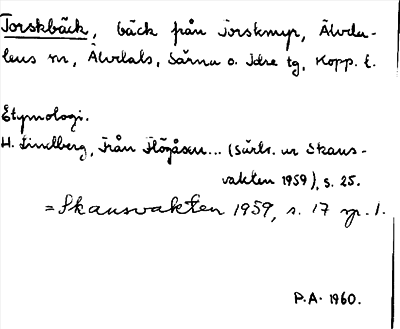 Torskbäck, bäck från Torskmyr, Älvda-
lens sn, Älvdals, Särna o. Idre tg, Kopp. l.
Etymologi.
H. Lindberg, Från Högåsen... (Särtr. ur Skans-
vakten 1959), s. 25.
= Skansvakten 1959, s. 17 sp. 1.
P.A. 1960.